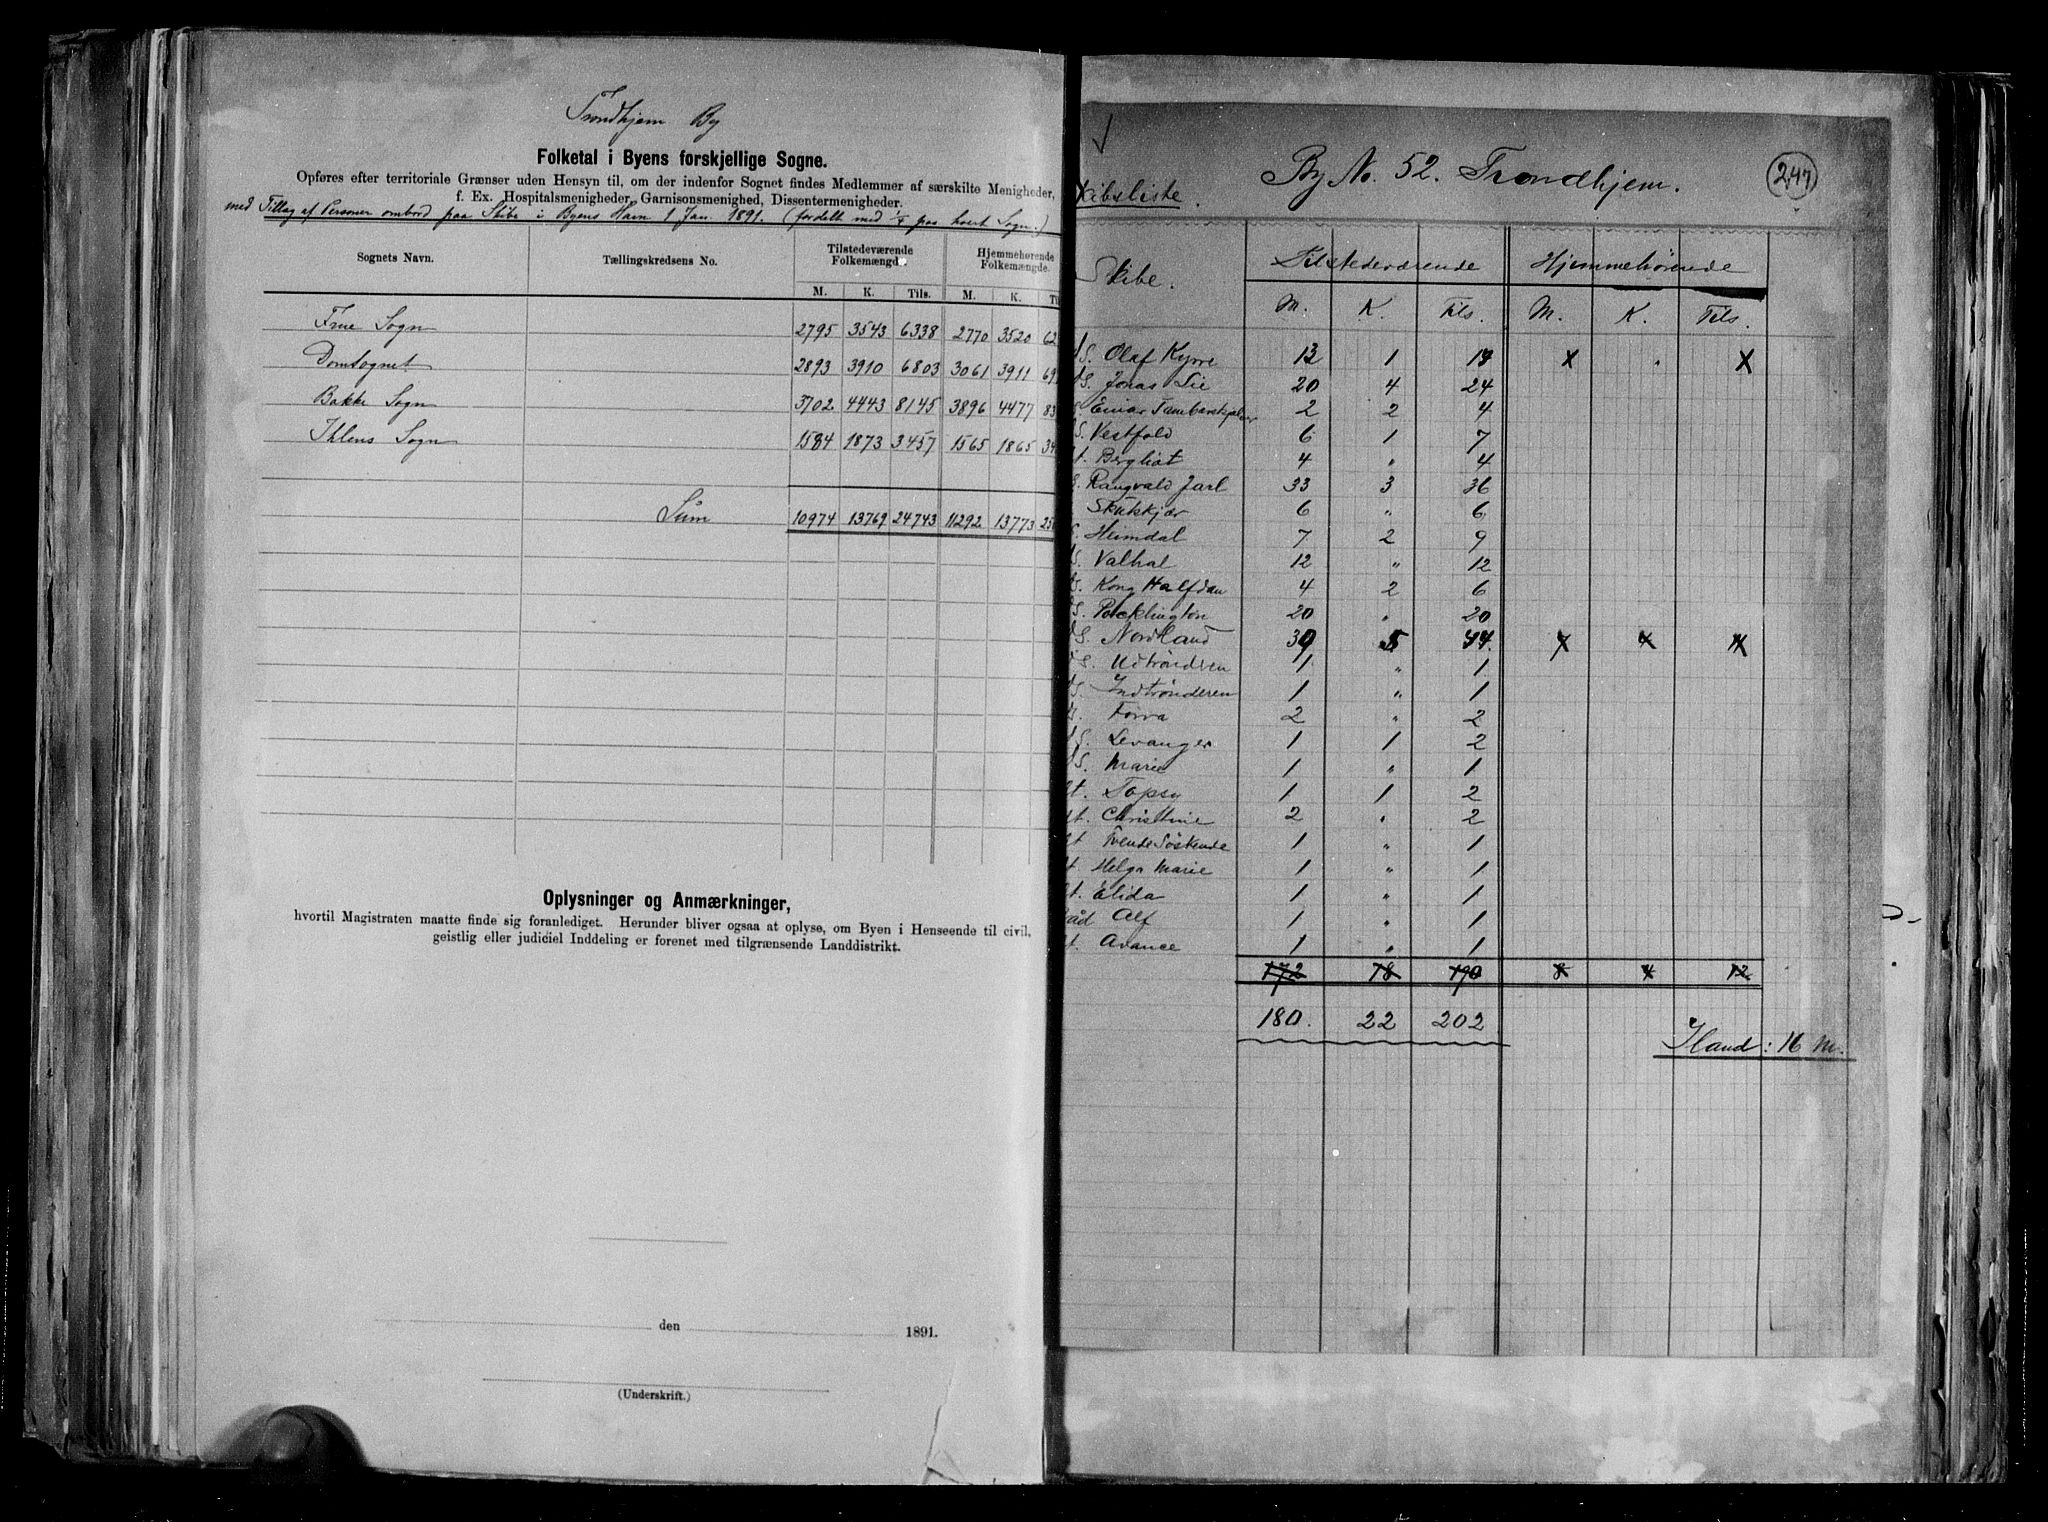 Trondhjem By
Folketal i Byens forskjellige Sogne.
Opføres efter territoriale Grænser uden Hensyn til, om der indenfor Sognet findes Medlemmer af særskilte Menigheder,
f. Ex. Hospitalsmenigheder, Garnisonsmenighed, Dissentermenigheder.
med Tillag af Personer ombord paa Skibe i Byens Havn 1 Jan. 1891. (fordelt med 1/4 paa hvert Sogn.)
Sognets Navn. Tællingskredsens No. Tilstedeværende Folkemængde. Hjemmehørende Folkemængde.
M. K. Tils. M. K.
Frue Sogn 2795 3543 6338 2770 3520 62
Domsognet 2893 3910 6803 3061 3911 69
Bakke Sogn 3702 4443 8145 3896 4477 83
Ihlens Sogn 1584 1873 3457 1565 1865 34
Sum 10974 13769 24743 11292 13773 250
Oplysninger og Anmærkninger,
hvortil Magistraten maatte finde sig foranlediget. Herunder bliver ogsaa at oplyse, om Byen i Henseende til civil,
geistlig eller judiciel Inddeling er forenet med tilgrænsende Landdistrikt.
den 1891.
(Underskrift.)
247
By No. 52. Trondhjem.
kibsliste.
Skibe. Tilstedeværende Hjemmehørende
M. K. Tils. M. K. Tils.
S. Olaf Kyrre 13 1
S. Jonas Lie 20 4 24
S. Einar Tambarskjælver 2 2 4
S. Vestfold 6 1 7
t. Bergliot 4 " 4
S. Rangvald Jarl 33 3 36
Skutskjær 6 " 6
S. Heimdal 7 2 9
S. Valhal 12 " 12
S. Kong Halfdan 4 2 6
S. Pocklington 20 " 20
S. Nordland
S. Udtrønderen 1 " 1
S. Indtrønderen 1 " 1
S. Forra 2 " 2
S. Levanger 1 1 2
S. Marie 1 " 1
t. Topsy 1 1 2
t. Christine 2 " 2
t Trende Søskende 1 " 1
t. Helga Marie 1 " 1
t. Elida 1 " 1
åd Alf 1 " 1
t. Avance 1 " 1
172 18 190 8 4 12
180. 22 202
Iland: 16 M.